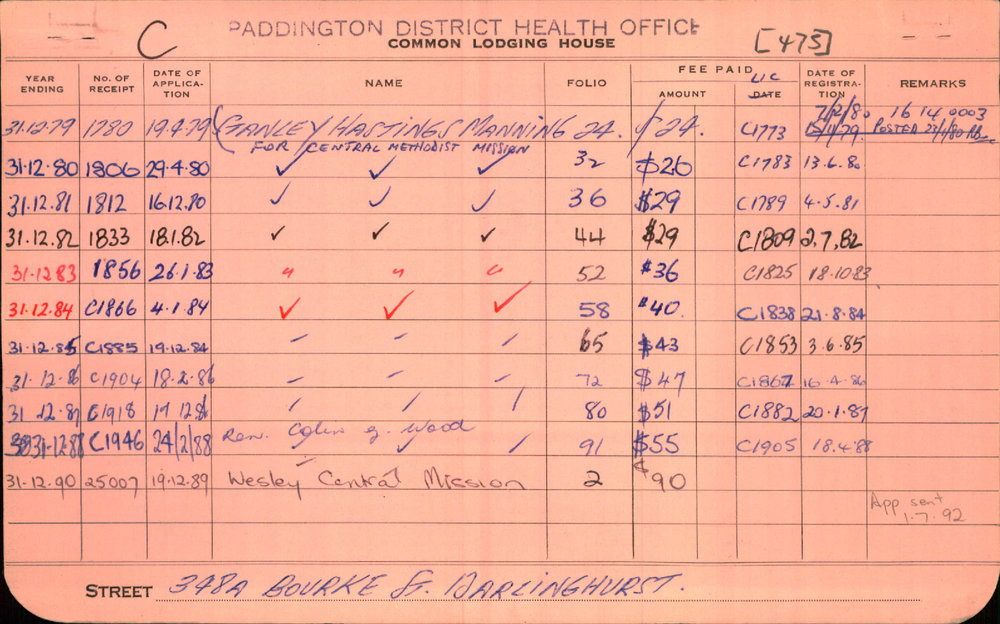 C PADDINGTON DISTRICT HEALTH OFFICE [475]
COMMON LODGING HOUSE
YEAR ENDING No. OF RECEIPT DATE OF APPLICATION NAME FOLIO FEE PAID AMOUNT LIC DATE DATE OF REGISTRATION REMARKS
31.12.79 1780 19.4.79 GANLEY HASTINGS MANNING 24. $24. C1773 7/2/80 16 14 0003
FOR CENTRAL METHODIST MISSION POSTED
31.12.80 1806 29.4.80 ✓ ✓ ✓ 32 $26 C1783 13.6.80
31.12.81 1812 16.12.80 ✓ ✓ ✓ 36 $29 C1789 4.5.81
31.12.82 1833 18.1.82 ✓ ✓ ✓ 44 $29 C1809 2.7.82
31.12.83 1856 26.1.83 " " " 52 $36 C1825 18.10.83
31.12.84 C1866 4.1.84 ✓ ✓ ✓ 58 $40. C1838 21.8.84
31.12.85 C1885 19.12.84 65 $43 C1853 3.6.85
31.12.86 C1904 18.2.86 72 $47 C1867 16.4.86
31.12.87 C1918 17.12.86 80 $51 C1882 20.1.87
Rev. Colin G. Wood
31.12.88 C1946 24/2/88 91 $55 C1905 18.4.88
31.12.90 25007 19.12.89 Wesley Central Mission 2 $90
App sent
1.7.92
STREET 348A BOURKE St. DARLINGHURST.